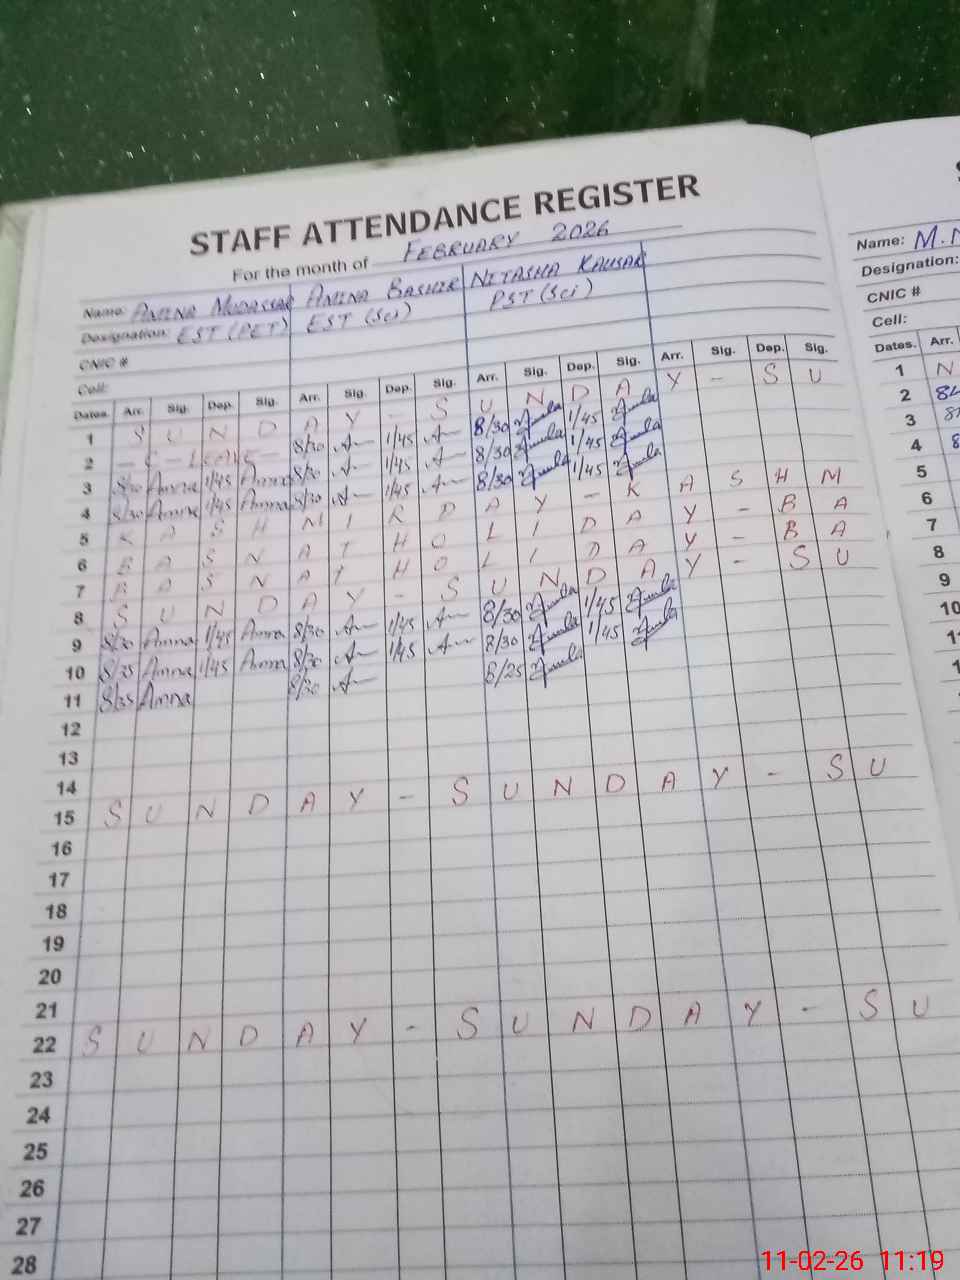 STAFF ATTENDANCE REGISTER
For the month of FEBRUARY 2026
Name: AMINA MUDASSAR AMINA BASHIR NITASHA KAUSAR
Designation: EST (PET) EST (Sci) PST (Sci)
CNIC #
Cell:
Dates. Arr. Sig. Dep. Sig. Arr. Sig. Dep. Sig. Arr. Sig. Dep. Sig. Arr. Sig. Dep. Sig.
1 S U N D A Y - S U N D A Y - S U
2 - C - LEAVE - 8/30 1/45 8/30 1/45
3 8/30 Amna 1/45 Amna 8/30 1/45 8/30 1/45
4 8/30 Amna 1/45 Amna 8/30 1/45 8/30 1/45
5 K A S H M I R D A Y - K A S H M
6 B A S N A T H O L I D A Y - B A
7 B A S N A T H O L I D A Y - B A
8 S U N D A Y - S U N D A Y - S U
9 8/30 Amna 1/45 Amna 8/30 1/45 8/30 1/45
10 8/35 Amna 1/45 Amna 8/30 1/45 8/30 1/45
11 8/35 Amna 8/30 8/25
12
13
14
15 S U N D A Y - S U N D A Y - S U
16
17
18
19
20
21
22 S U N D A Y - S U N D A Y - S U
23
24
25
26
27
28
Name: M.
Designation:
CNIC #
Cell:
Dates. Arr.
1 N
2
3
4
5
6
7
8
9
10
11-02-26 11:19